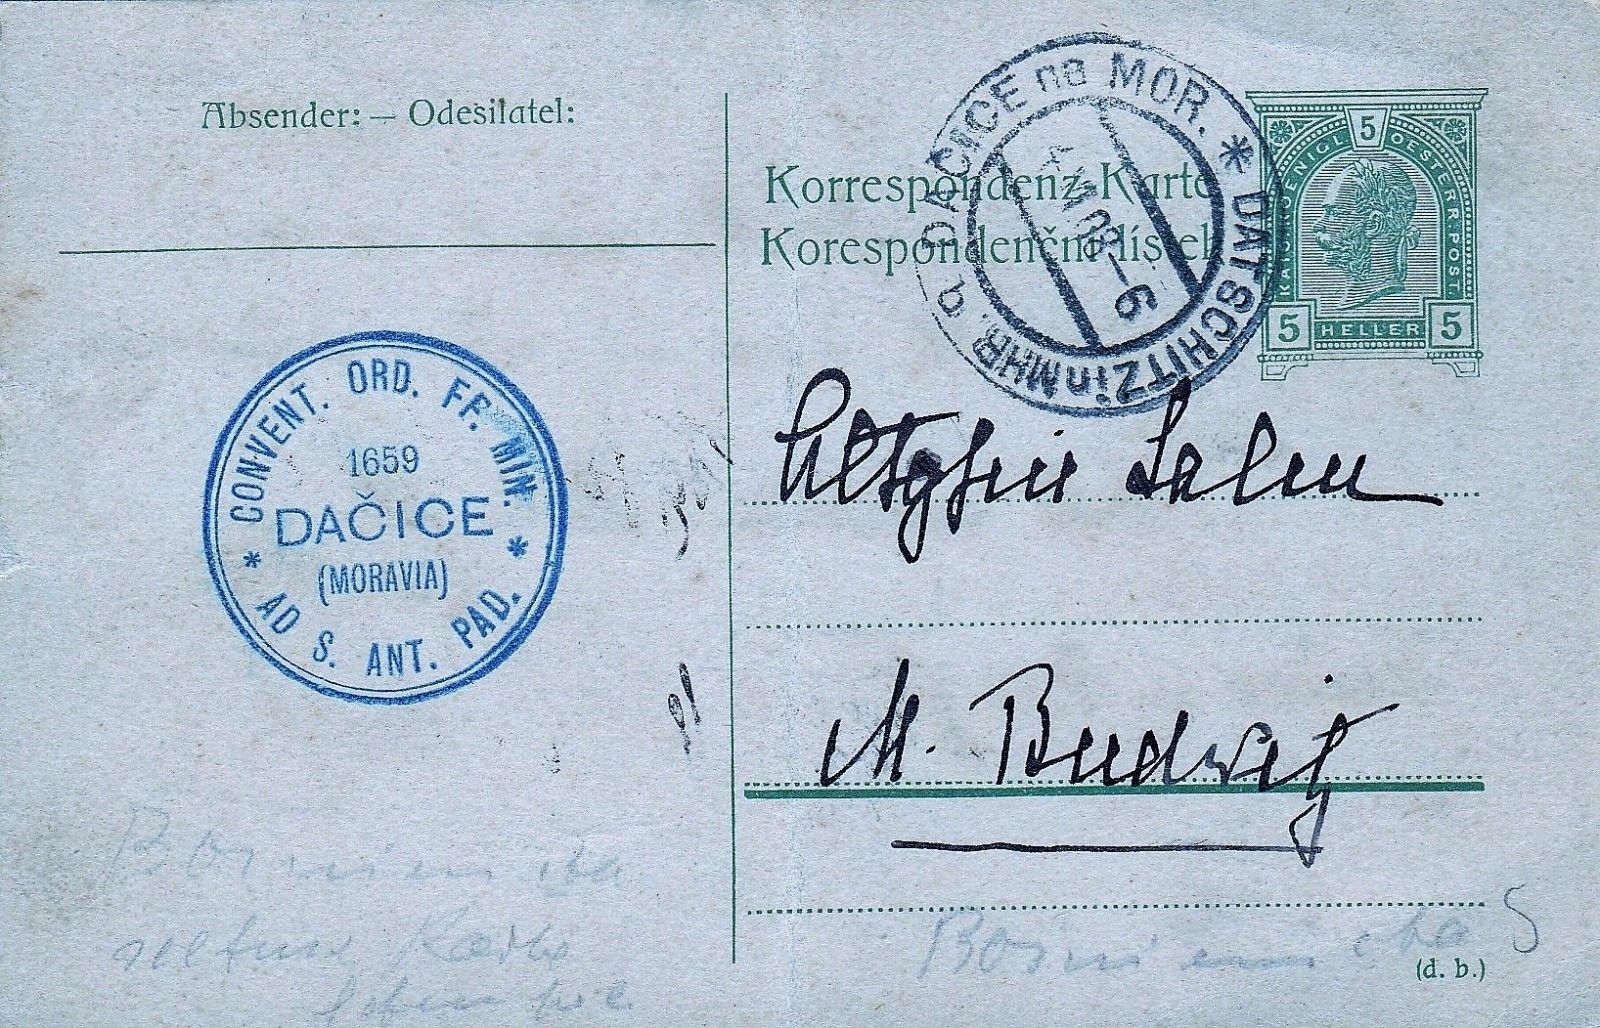 Absender: — Odesílatel:
Korrespondenz-Karte
Korespondenční lístek
DAČICE na MOR. * DATSCHITZ in MHR. q
-6
KAIS. KÖNIGL. OESTERR. POST
5
5 HELLER 5
CONVENT. ORD. FF. MIN.
1659
DAČICE
(MORAVIA)
* AD S. ANT. PAD. *
Salm
M. Budwitz
(d. b.)